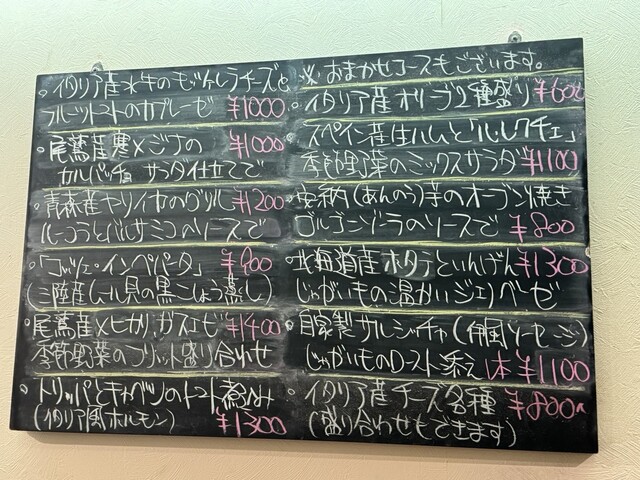 ・イタリア産水牛のモッツァレラチーズと
フルーツトマトのカプレーゼ ¥1000
・尾鷲産寒メジナの ¥1000
カルパッチョ サラダ仕立てで
・青森産ヤリイカのグリル ¥1200
ルーコラとバルサミコのソースで
・「コッツェ・インペパータ」 ¥900
(三陸産ムール貝の黒こしょう蒸し)
・尾鷲産メヒカリ、ガスエビ ¥1400
季節野菜のフリット盛り合わせ
・トリッパとキャベツのトマト煮込み
(イタリア風ホルモン) ¥1300
※おまかせコースもございます。
・イタリア産オリーブ2種盛り ¥600
・スペイン産生ハムと「ルレクチェ」
季節野菜のミックスサラダ ¥1100
・安納(あんのう)芋のオーブン焼き
ゴルゴンゾーラのソースで ¥800
・北海道産ホタテといんげん ¥1300
じゃがいもの温かいジェノベーゼ
・自家製サルシッチャ(伊風ソーセージ)
じゃがいものロースト添え 1本 ¥1100
・イタリア産チーズ各種 ¥800〜
(盛り合わせもできます)